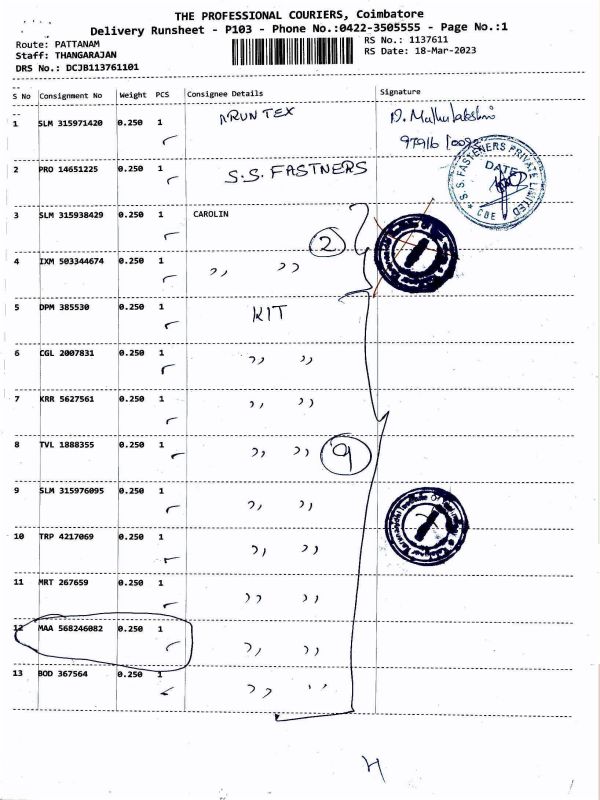 THE PROFESSIONAL COURIERS, Coimbatore
Delivery Runsheet - P103 - Phone No.:0422-3505555 - Page No.:1
Route: PATTANAM
RS No.: 1137611
Staff: THANGARAJAN
RS Date: 18-Mar-2023
DRS No.: DCJB113761101
S No Consignment No Weight PCS Consignee Details Signature
1 SLM 315971420 0.250 1 ARUN TEX
2 PRO 14651225 0.250 1 S.S. FASTNERS
S. S. FASTENERS PRIVATE LIMITED
DATE
CBE
3 SLM 315938429 0.250 1 CAROLIN
2
4 IXM 503344674 0.250 1 ,, ,,
5 DPM 385530 0.250 1 KIT
6 CGL 2007831 0.250 1 ,, ,,
7 KRR 5627561 0.250 1 ,, ,,
8 TVL 1888355 0.250 1 ,, ,,
9
9 SLM 315976095 0.250 1 ,, ,,
10 TRP 4217069 0.250 1 ,, ,,
11 MRT 267659 0.250 1 ,, ,,
12 MAA 568246082 0.250 1 ,, ,,
13 BOD 367564 0.250 1 ,, ,,